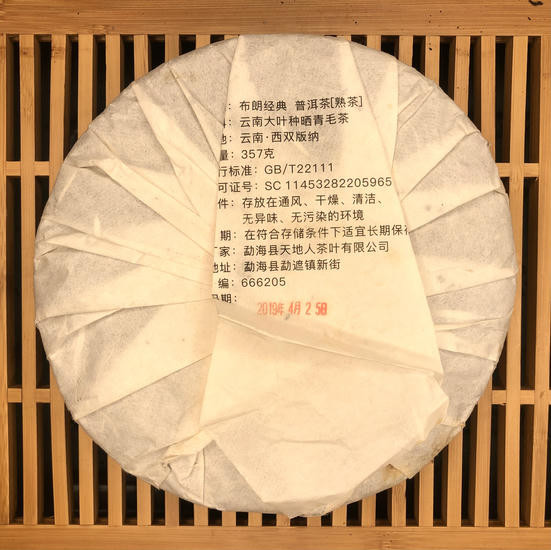 ：布朗经典 普洱茶[熟茶]
：云南大叶种晒青毛茶
地：云南·西双版纳
量：357克
行标准：GB/T22111
可证号：SC 11453282205965
件：存放在通风、干燥、清洁、
无异味、无污染的环境
期：在符合存储条件下适宜长期保存
厂家：勐海县天地人茶叶有限公司
地址：勐海县勐遮镇新街
编：666205
日期：
2019年 4月 2 5日